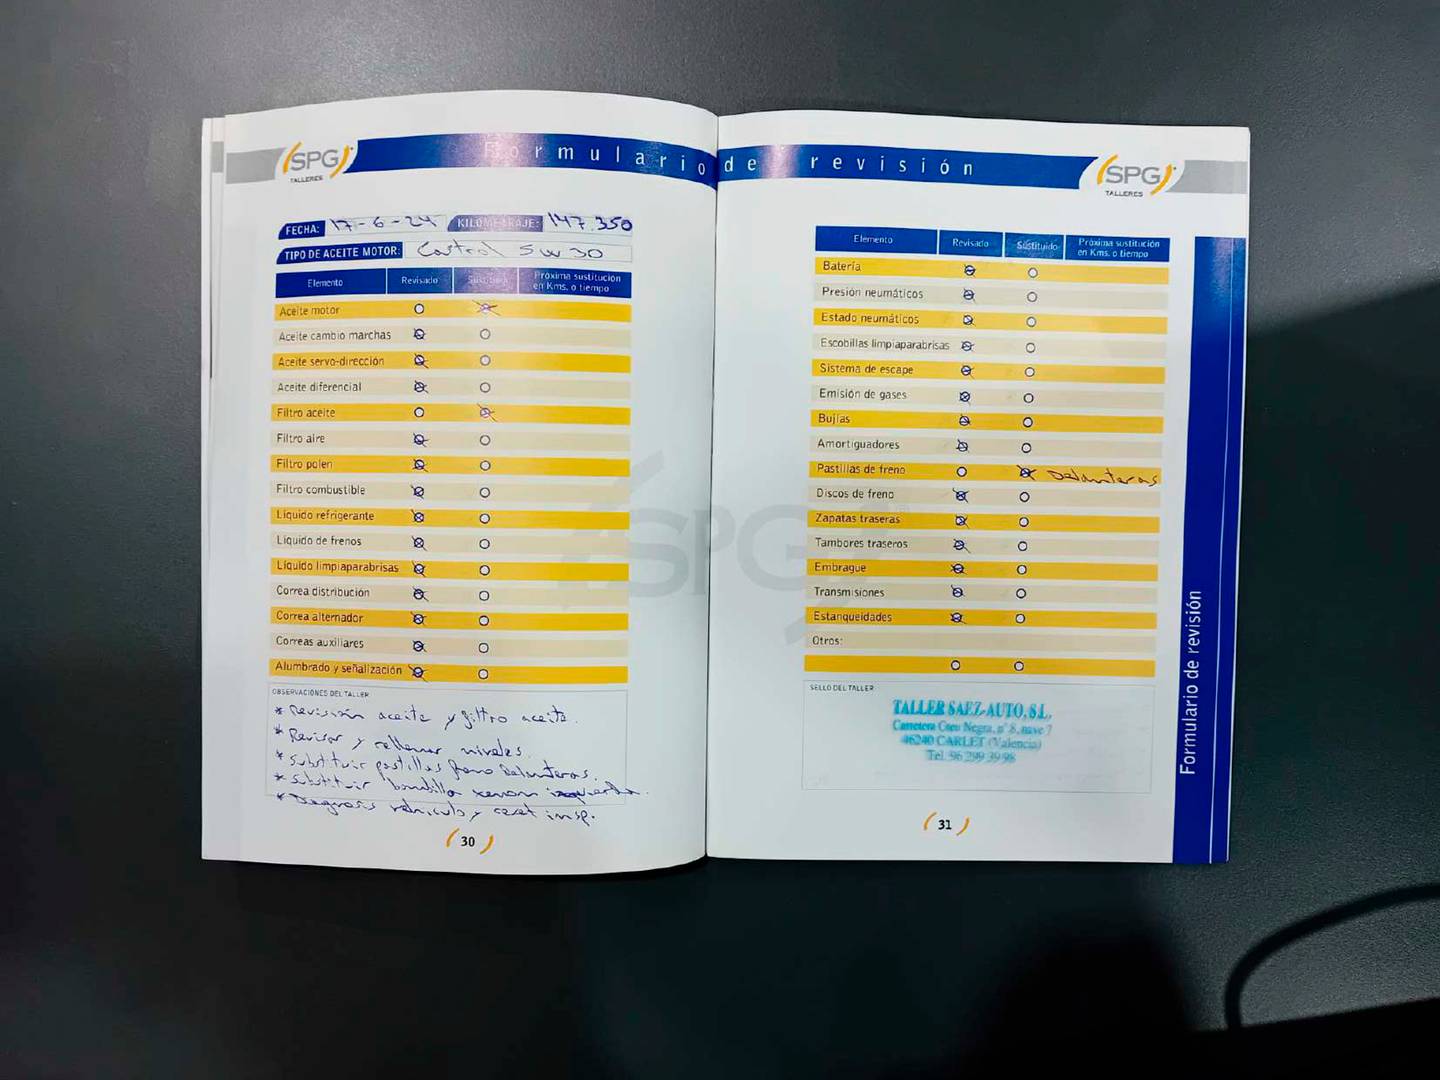 SPG
TALLERES
Formulario de revisión
SPG
TALLERES
FECHA: 17-6-24 KILOMETRAJE: 147.350
TIPO DE ACEITE MOTOR: Castrol 5w30
Elemento Revisado Sustituido Próxima sustitución en Kms. o tiempo
Aceite motor
Aceite cambio marchas
Aceite servo-dirección
Aceite diferencial
Filtro aceite
Filtro aire
Filtro polen
Filtro combustible
Líquido refrigerante
Líquido de frenos
Líquido limpiaparabrisas
Correa distribución
Correa alternador
Correas auxiliares
Alumbrado y señalización
OBSERVACIONES DEL TALLER
* Revisión aceite y filtro aceite.
* Revisar y rellenar niveles.
* Substituir pastillas freno delanteras.
* Substituir bombilla xenon izquierda.
* Diagnosis vehiculo y reset insp.
30
Elemento Revisado Sustituido Próxima sustitución en Kms. o tiempo
Batería
Presión neumáticos
Estado neumáticos
Escobillas limpiaparabrisas
Sistema de escape
Emisión de gases
Bujías
Amortiguadores
Pastillas de freno Delanteras
Discos de freno
Zapatas traseras
Tambores traseros
Embrague
Transmisiones
Estanqueidades
Otros:
SELLO DEL TALLER
TALLER SAEZ-AUTO, S.L.
Carretera Creu Negra, nº 8, nave 7
46240 CARLET (Valencia)
Tel. 96 299 39 98
31
Formulario de revisión
SPG